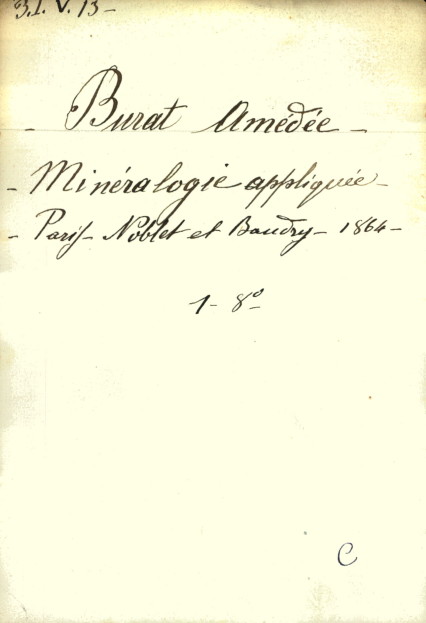 3.I. V. 13-
- Burat Amédée -
- Minéralogie appliquée -
- Paris - Noblet et Baudry - 1864 -
1 - 8º
C